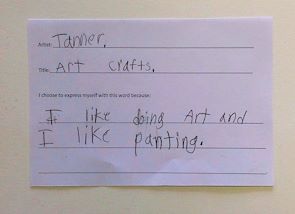 Artist: Tanner.
Title: Art crafts.
I choose to express myself with this word because:
I like doing Art and
I like panting.